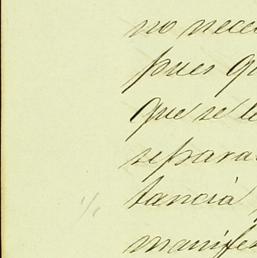 no nece
pues q
que se le
separa
tancia
manifes